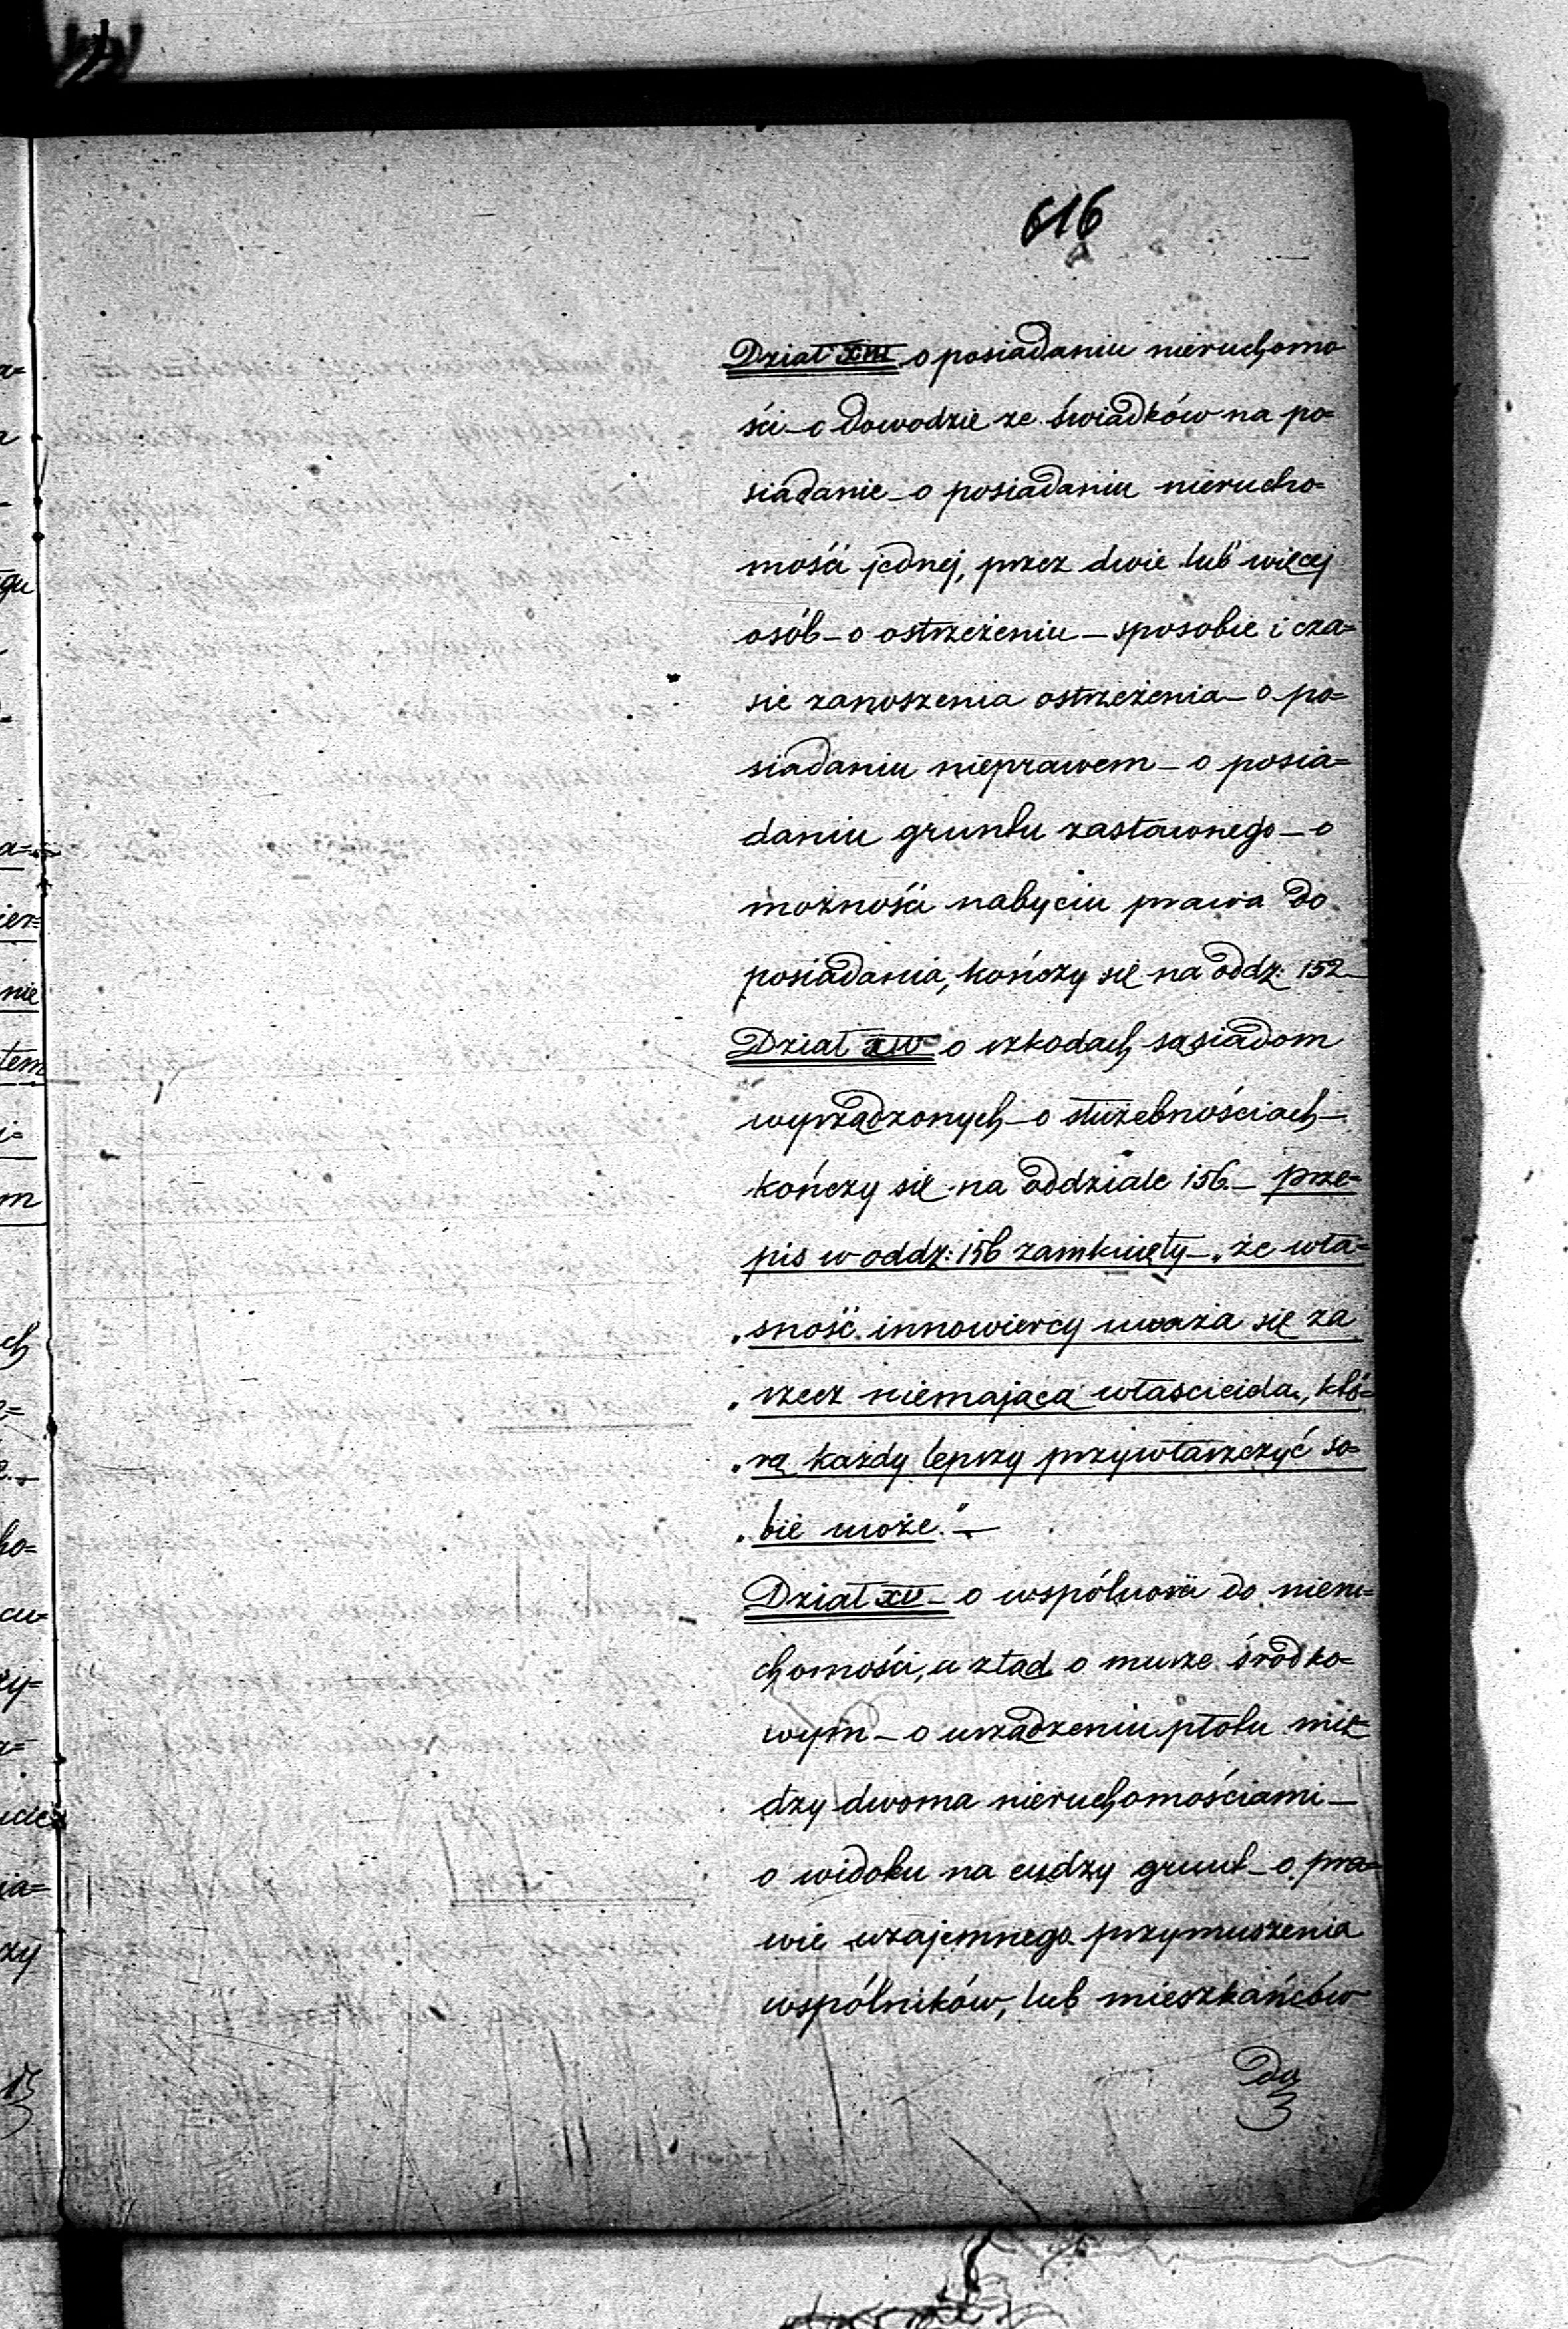 616
Dział XIII o posiadaniu nieruchomo
ści – o dowodzie ze świadków na po=
siadanie – o posiadaniu nierucho=
mości jednej, przez dwie lub więcej
osób – o ostrzeżeniu – sposobie i cza=
sie zanoszenia ostrzeżenia – o po=
siadaniu nieprawem – o posia=
daniu gruntu zastawnego – o
możności nabyciu prawa do
posiadania, kończy się na oddz: 152 –
Dział XIV o szkodach sąsiadom
wyrządzonych – o służebnościach –
kończy się na oddziale 156. – prze=
pis w oddz: 156 zamknięty – „że wła=
„sność innowiercy uważa się za
„rzecz niemającą właściciela, któ=
„rą każdy lepszy przywłaszczyć so=
„bie może.” –
Dział XV – o wspólności do nieru=
chomości, a ztąd o murze środko=
wym – o urządzeniu płotu mię=
dzy dwoma nieruchomościami –
o widoku na cudzy grunt – o pra=
wie wzajemnego przymuszenia
wspólników, lub mieszkańców
do